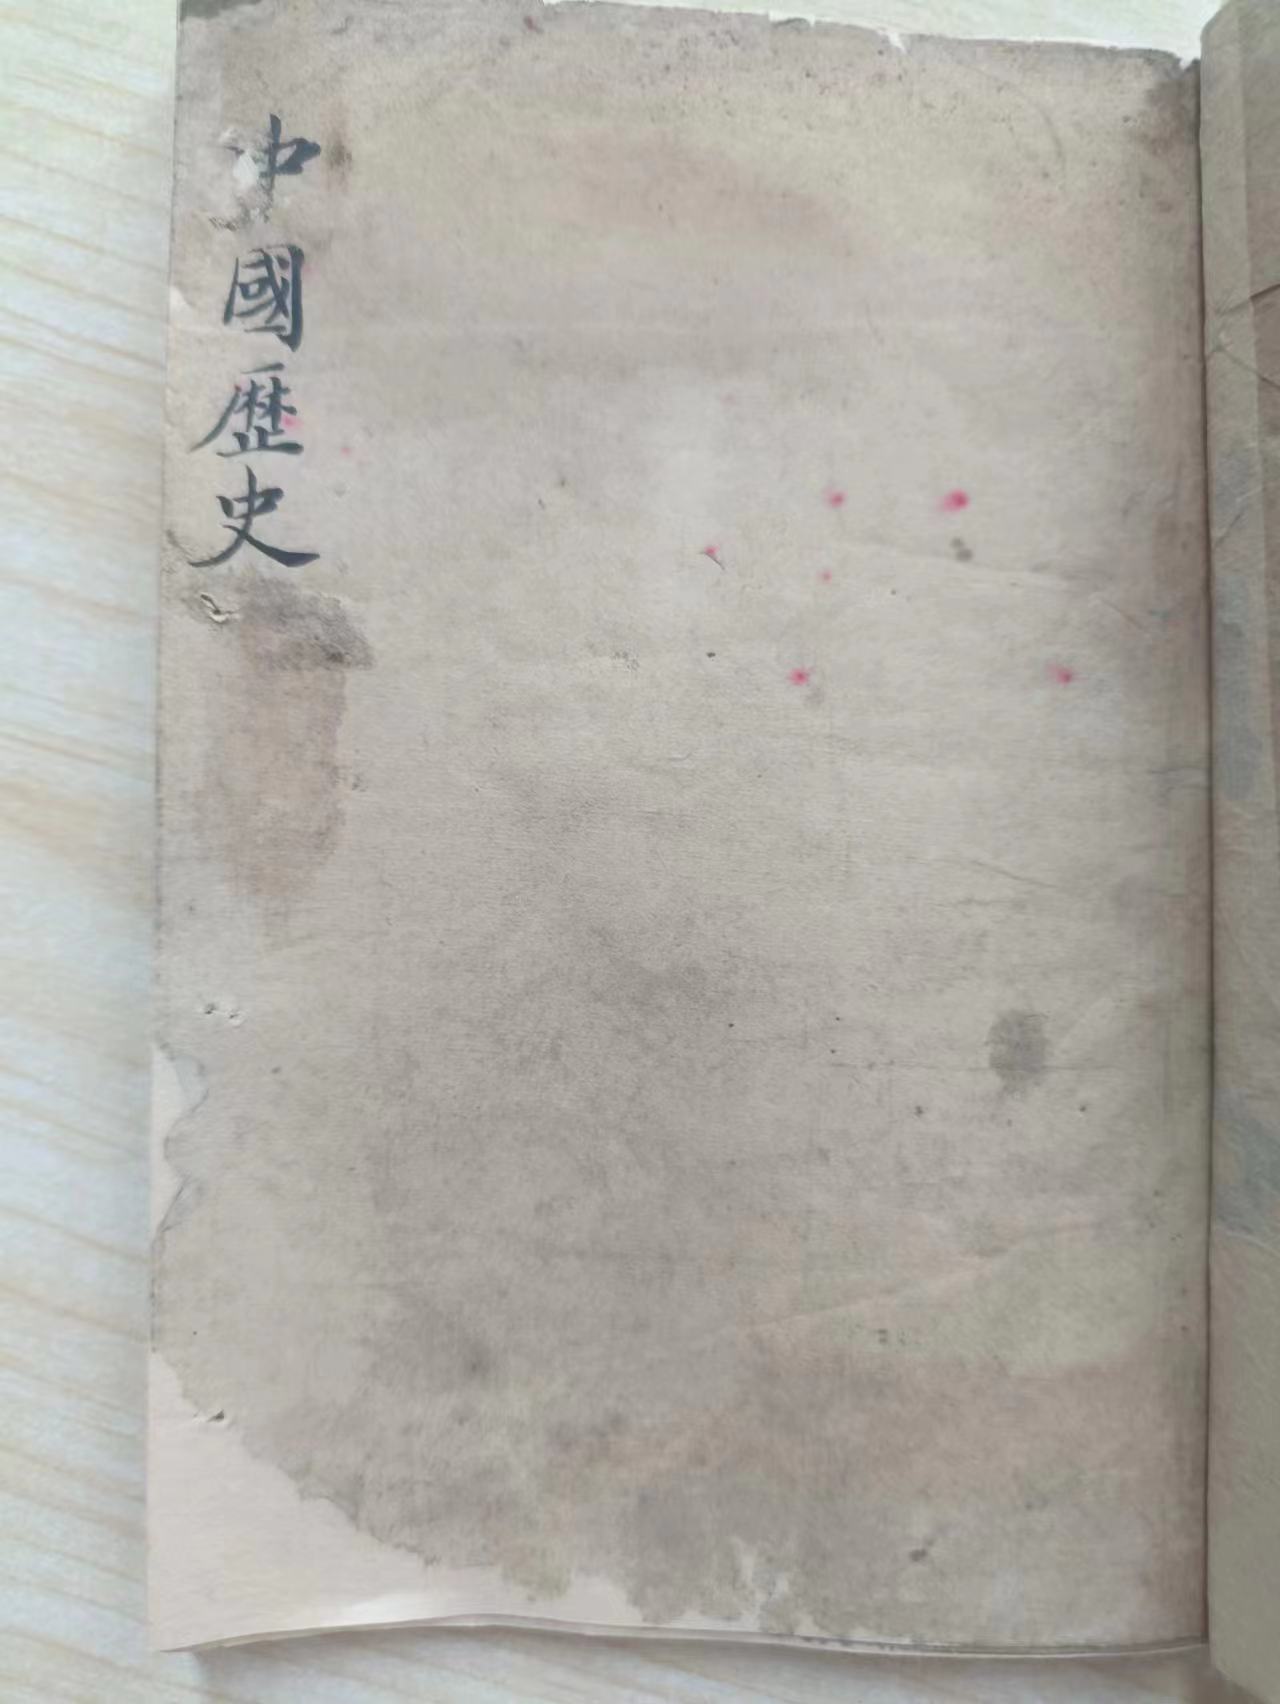 中國歷史